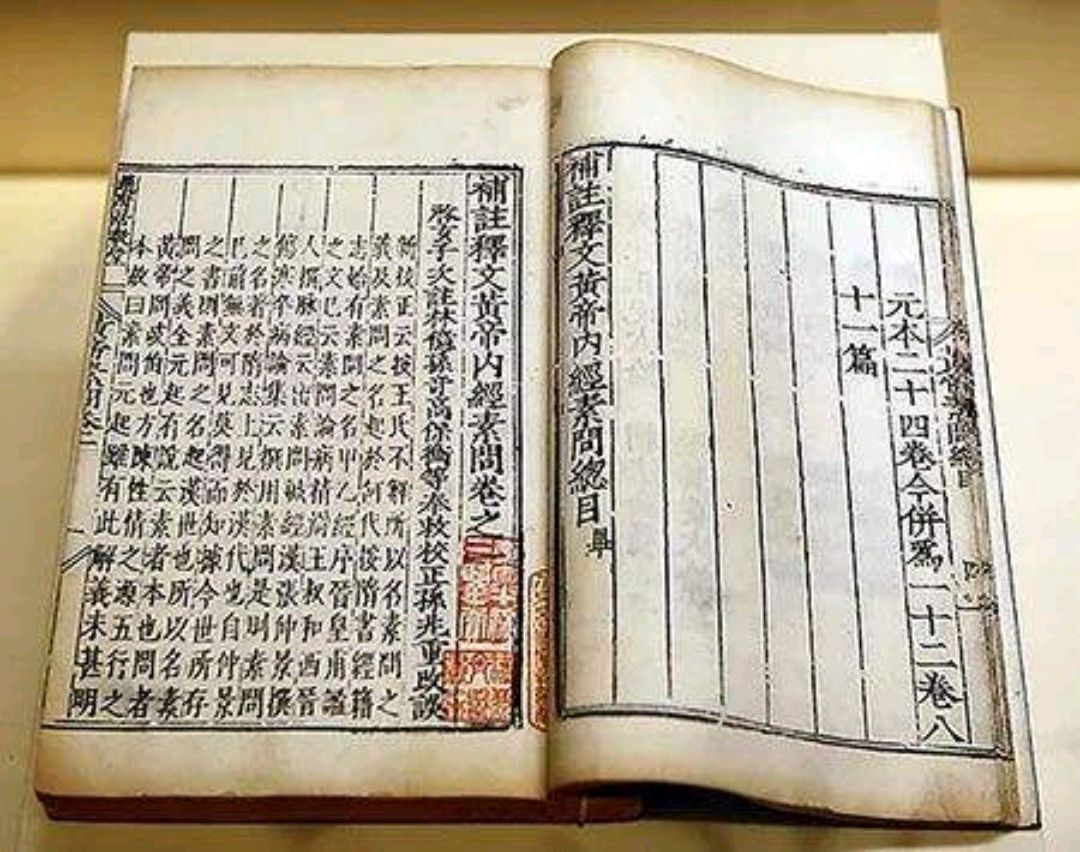 元本二十四卷今併爲一十二卷八
十一篇
補註釋文黃帝內經素問總目畢
補註釋文黃帝內經素問卷之一
啓玄子次註林億孫竒高保衡等奉敕校正孫兆重改誤
新校正云按王氏不解所以名素問之
義及素問之名起於何代按隋書經籍
志始有素問之名甲乙經序晉皇甫謐
之文已云素問論病精辯王叔和西晉
人撰脉經云出素問鍼經漢張仲景撰
傷寒卒病論集云撰用素問是則素問
之名著於隋志上見於漢代也自仲景
已前無文可見莫得而知據今世所存
之書則素問之名起漢世也所以名素
問之義全元起有說云素者本也問者
黃帝問岐伯也方陳性情之源五行之
本故曰素問元起雖有此解義未甚明